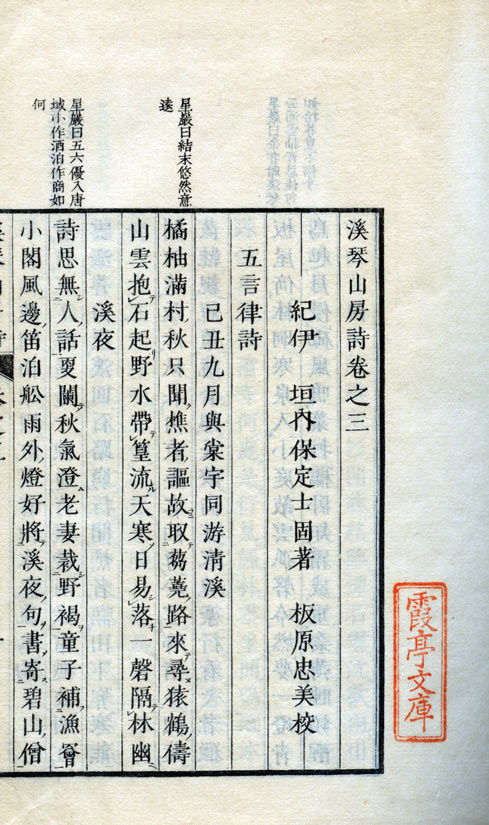 溪琴山房詩卷之三
紀伊 垣內保定士固著 板原忠美校
五言律詩
己丑九月與棠宇同游清溪
星巖曰結末悠然意
遠
橘柚滿村秋只聞樵者謳故取蒭蕘路來尋猿鶴儔
山雲抱石起野水帶篁流天寒日易落一磬隔林幽
溪夜
星巖曰五六優入唐
域小作酒泊作商如
何
詩思無人話更闌秋氣澄老妻裁野褐童子補漁罾
小閣風邊笛泊舩雨外燈好將溪夜句書寄碧山僧
霞亭文庫